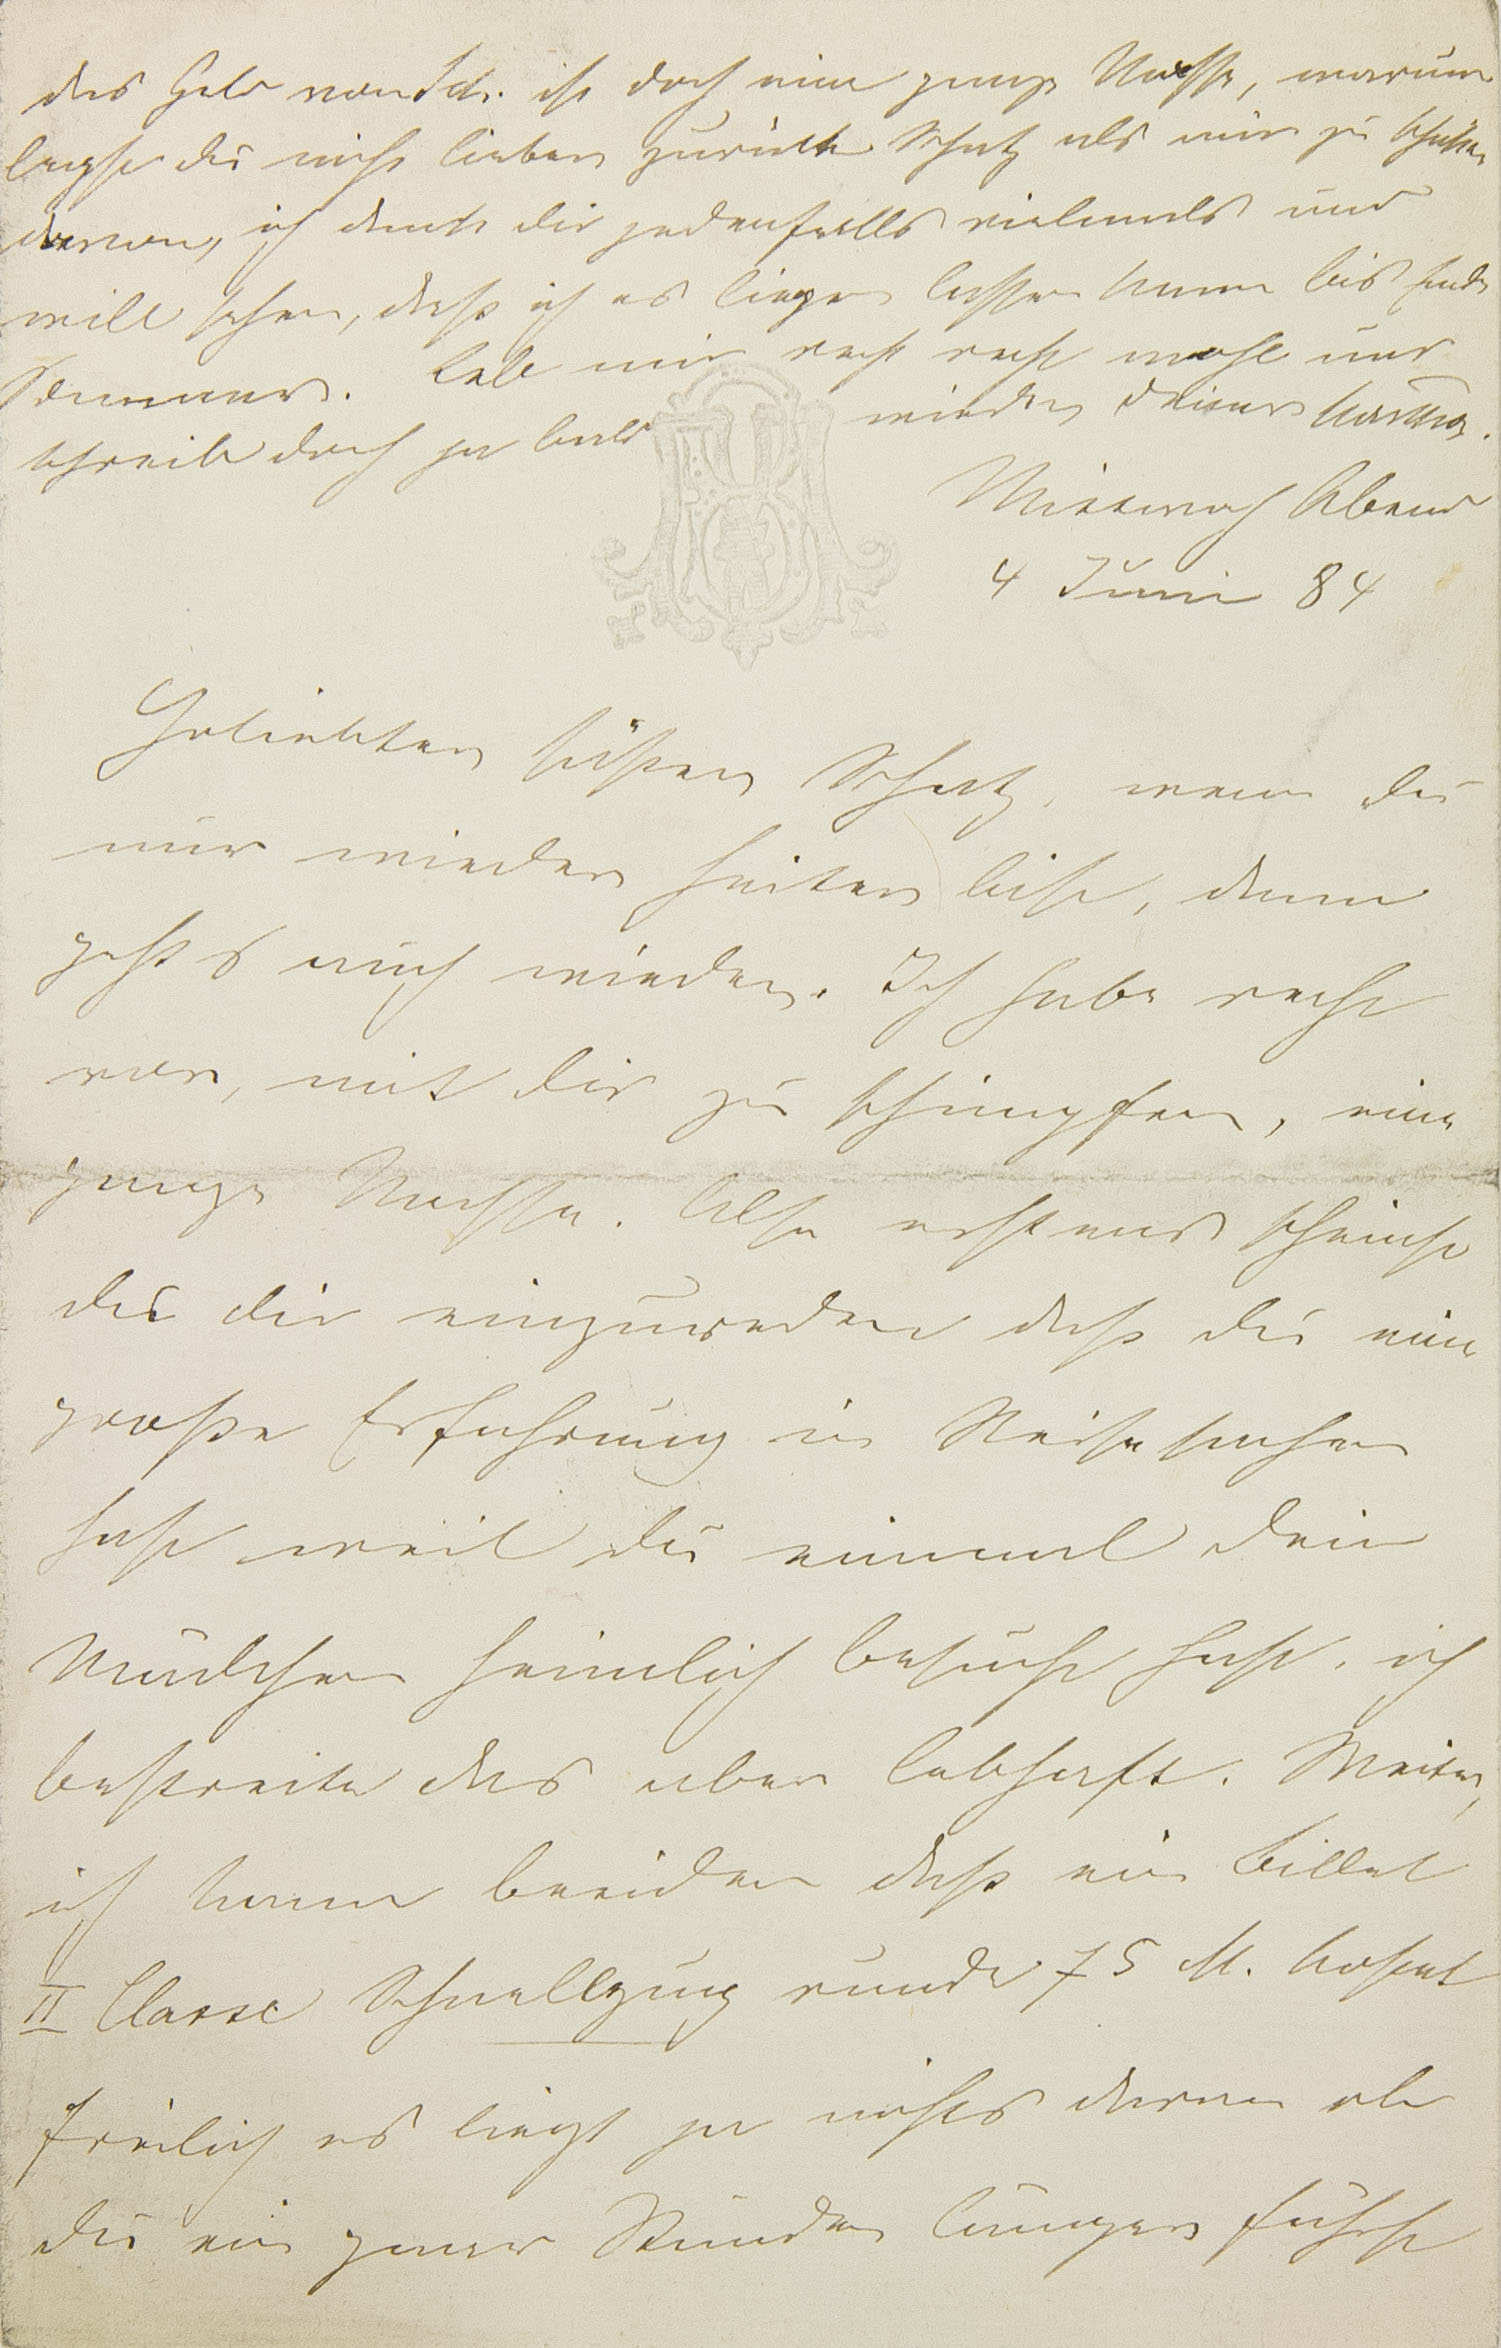 das Geld von Sch. ist doch eine ganze Masse, warum
legst du nicht lieber zurück Schatz als mir zu schicken
davon, ich danke dir jedenfalls vielmals und
will sehen, daß ich es liegen lassen kann bis Ende
Sommers. Leb mir recht recht wohl und
schreibe doch ja bald wieder Deiner Martha.
Mittwoch Abend
4 Juni 84
Geliebter süßer Schatz, wenn du
nur wieder heiter bist, dann
geht's auch wieder. Ich habe recht
vor, mit dir zu schimpfen, eine
ganze Masse. Also erstens scheinst
du dir einzureden daß du eine
große Erfahrung in Reisesachen
hast weil du einmal dein
Mädchen heimlich besucht hast, ich
bestreite das aber lebhaft. Weiter,
ich kann beeiden daß ein Billet
II Classe Schnellzug runde 75 M. kostet
freilich es liegt ja nichts daran ob
du ein paar Stunden länger fährst